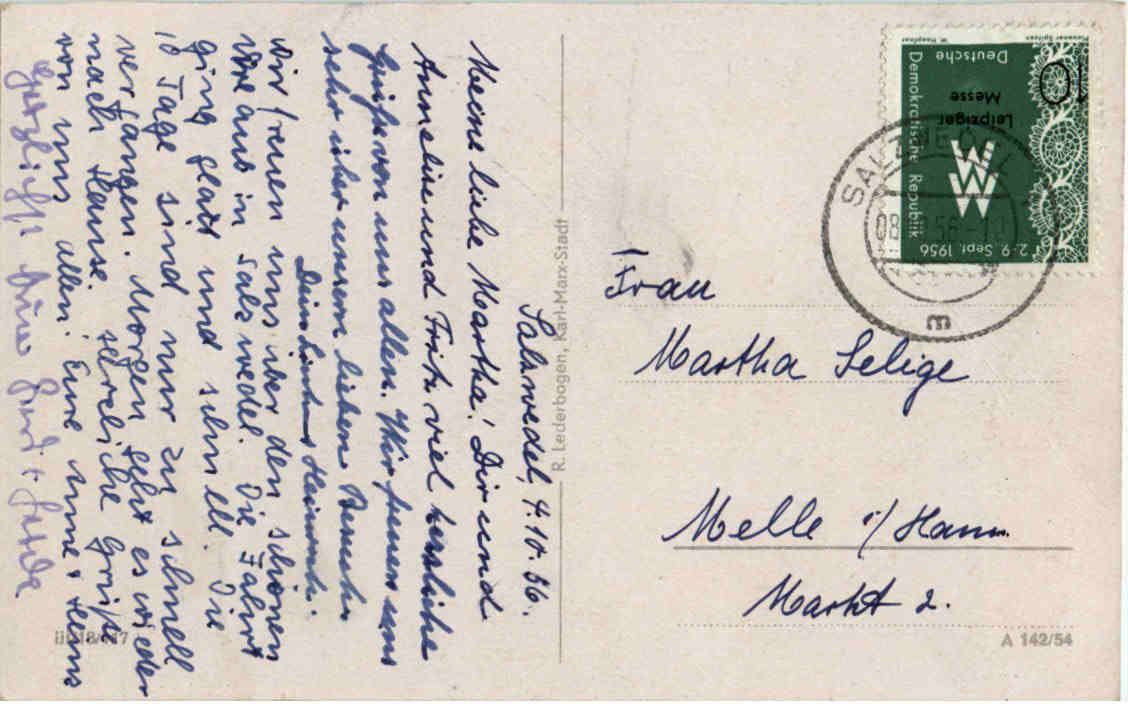 Salzwedel, 4.10.56.
Meine liebe Martha! Dir und
Anneliese und Fritz viel herzliche
Grüße von uns allen. Wir freuen uns
sehr über unsern lieben Besuch.
Dein
Heinrich.
wir freuen uns über den schönen
in Salzwedel. Die Fahrt
ging glatt und schnell. Die
10 Tage sind nur zu schnell
vergangen. Morgen geht es wieder
nach Hause. Herzliche Grüße
von uns allen. Eure Anne + Hans
Herzlichst
R. Lederbogen, Karl-Marx-Stadt
Frau
Martha Selige
Melle i/Hann.
Markt 2.
III/18/117
A 142/54
10
Deutsche
Demokratische Republik
Leipziger
Messe
2.-9. Sept. 1956
SALZWEDEL
m